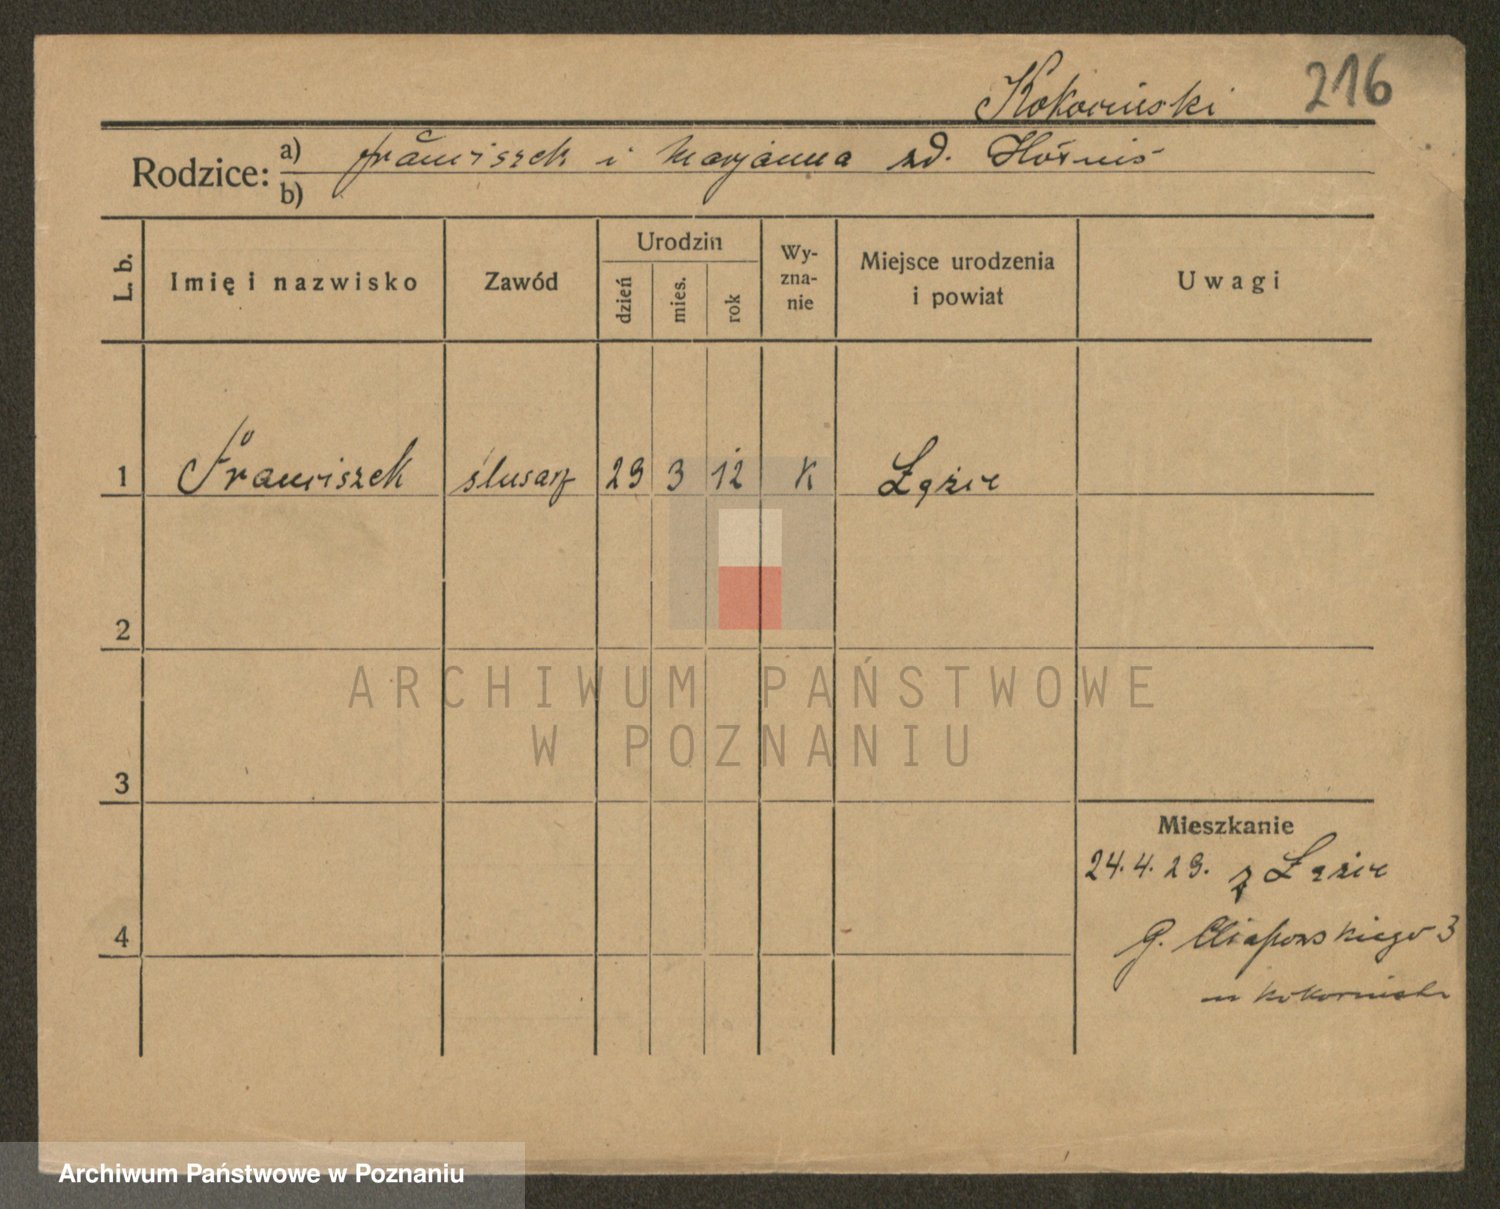 Kokociński 216
Rodzice: a) Franciszek i Marjanna zd.
b)
L. b. Imię i nazwisko Zawód Urodzin dzień mies. rok Wy-zna-nie Miejsce urodzenia i powiat Uwagi
1 Franciszek ślusarz 29 3 12 K Łężce
2
3
4
Mieszkanie
24.4.29. z
G. Chłapowskiego 3
ARCHIWUM PAŃSTWOWE
W POZNANIU
Archiwum Państwowe w Poznaniu